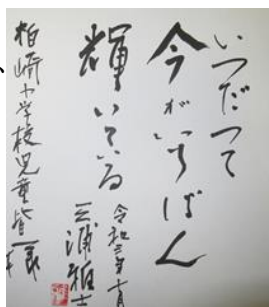 いつだって
今がいちばん
輝いている
令和三年十一月
三浦雅士
柏崎小学校児童皆様